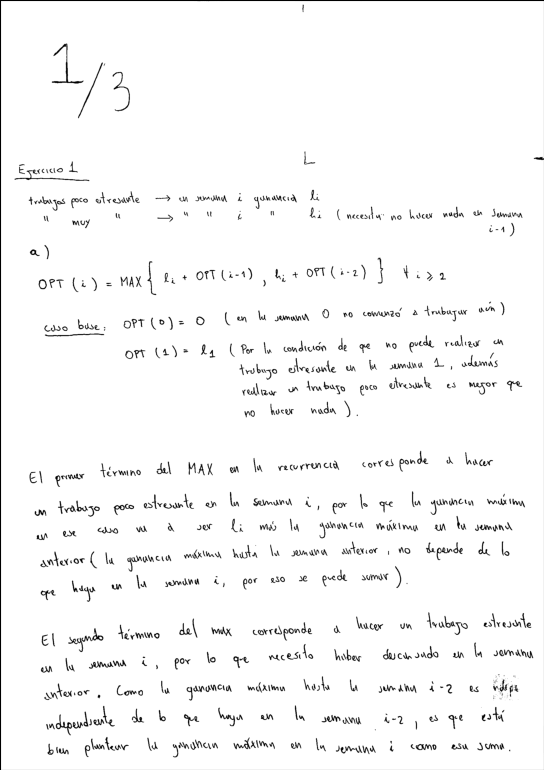 1/3
L
Ejercicio 1
trabajos poco estresante → en semana i ganancia li
" muy " → " " i " hi (necesita: no hacer nada en semana
i-1)
a)
OPT (i) = MAX { li + OPT (i-1) , hi + OPT (i-2) } ∀ i ≥ 2
caso base: OPT (0) = 0 (en la semana 0 no comenzó a trabajar aún)
OPT (1) = l1 (Por la condición de que no puede realizar un
trabajo estresante en la semana 1, además
realizar un trabajo poco estresante es mejor que
no hacer nada).
El primer término del MAX en la recurrencia corresponde a hacer
un trabajo poco estresante en la semana i, por lo que la ganancia máxima
en ese caso va a ser li más la ganancia máxima en la semana
anterior (la ganancia máxima hasta la semana anterior, no depende de lo
que haga en la semana i, por eso se puede sumar).
El segundo término del max corresponde a hacer un trabajo estresante
en la semana i, por lo que necesito haber descansado en la semana
anterior. Como la ganancia máxima hasta la semana i-2 es
independiente de lo que haga en la semana i-2, es que está
bien plantear la ganancia máxima en la semana i como esa suma.